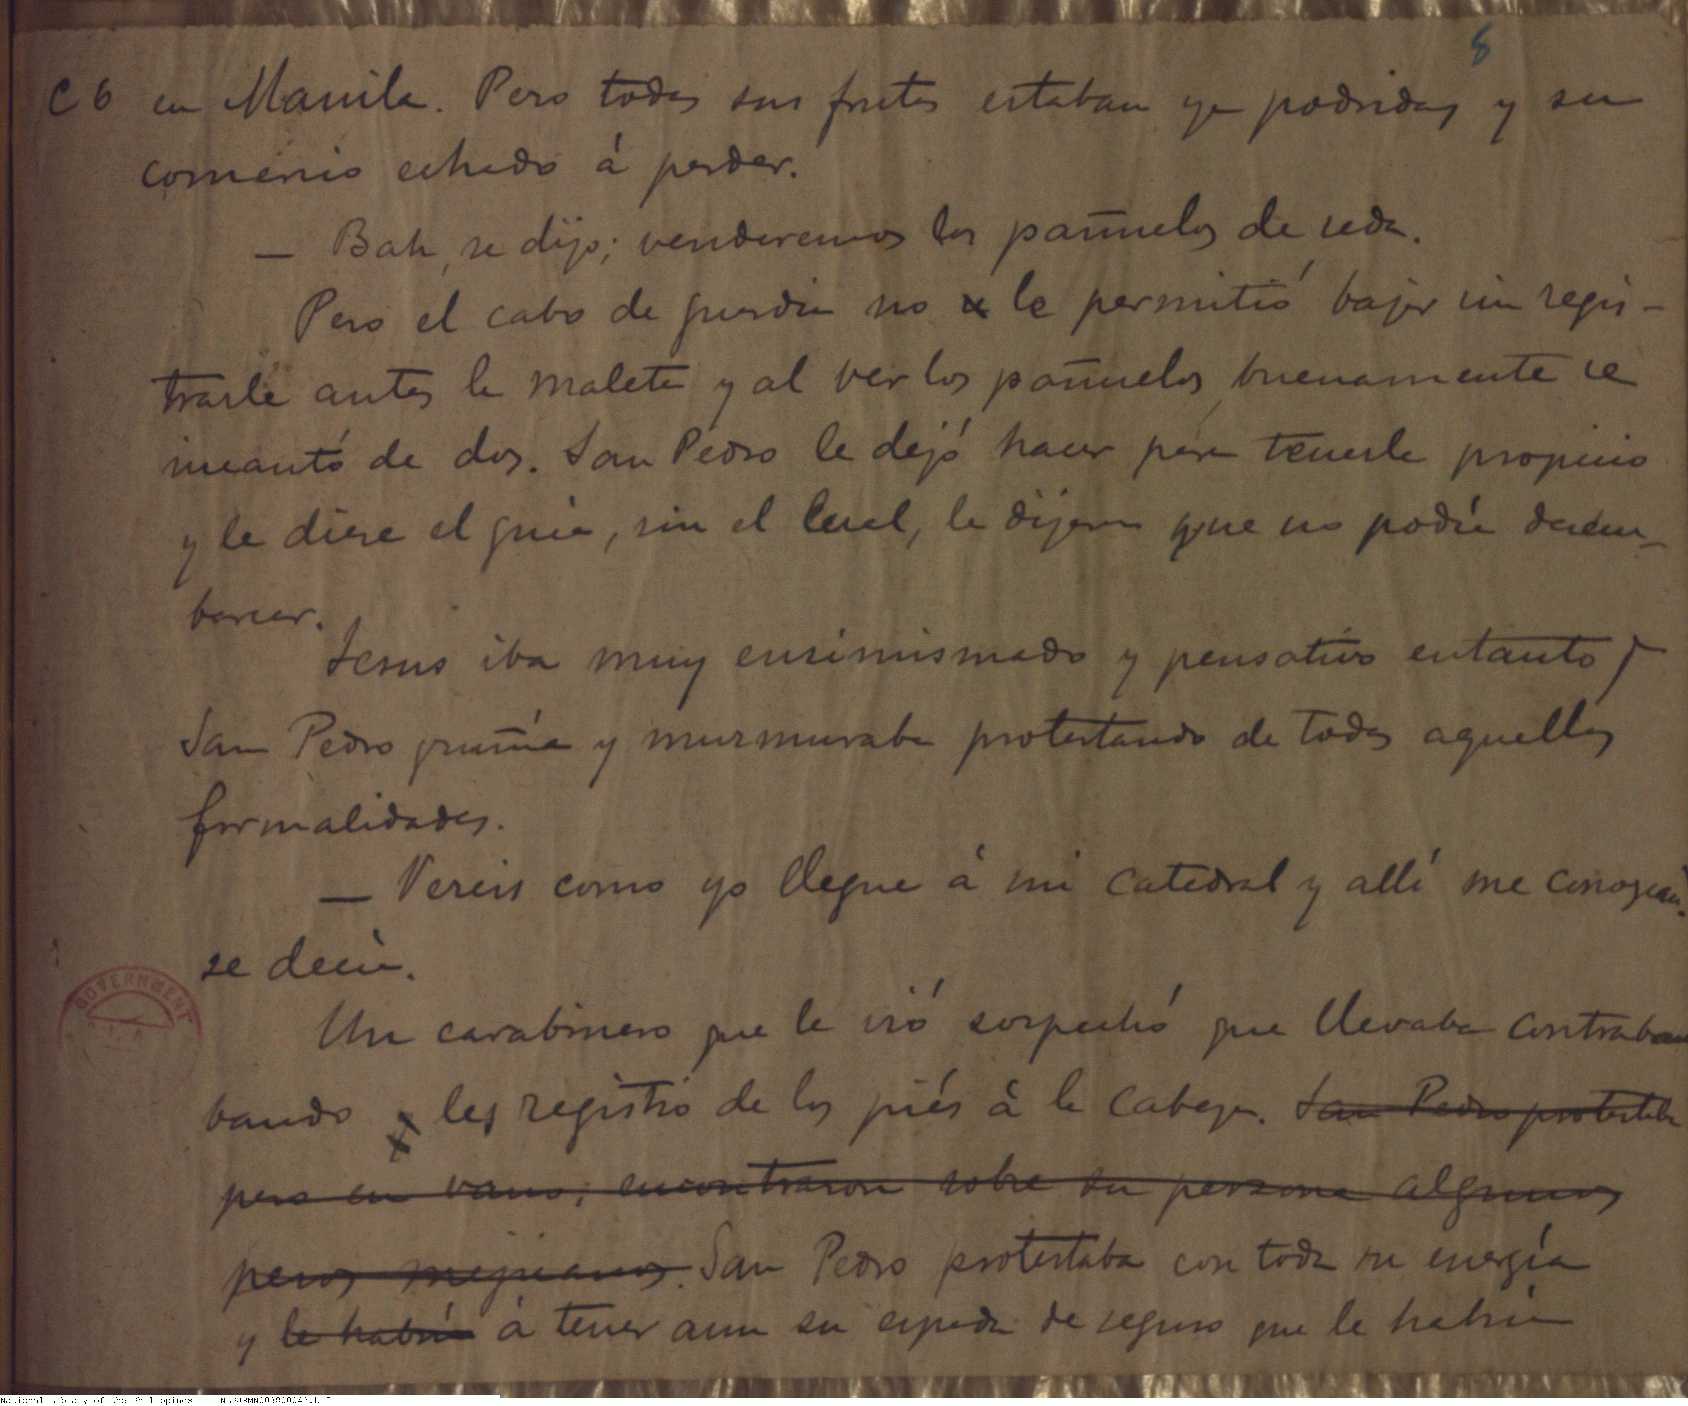 8
C 6 en Manila. Pero todas sus frutas estaban ya podridas y su
comercio echado á perder.
— Bah, se dijo; venderemos los pañuelos de seda.
Pero el cabo de guardia no le permitió bajar sin regis-
trarle antes la maleta y al ver los pañuelos buenamente se
incautó de dos. San Pedro le dejó hacer para tenerle propicio
y le diese el guia, sin el cual, le dijeron que no podia desem-
barcar.
Jesus iba muy ensimismado y pensativo entanto
San Pedro gruñía y murmuraba protestando de todas aquellas
formalidades.
— Vereis como yo llegue á mi catedral y allí me conozcan.
se decia.
Un carabinero que le vió sospechó que llevaba contraban
bando les registró de los piés á la cabeza. San Pedro protestaba
pero en vano; encontraron sobre su persona algunos
pesos mejicanos. San Pedro protestaba con toda su energía
y le habria á tener aun su espada de seguro que le habria
GOVERNMENT
National Library of the Philippines